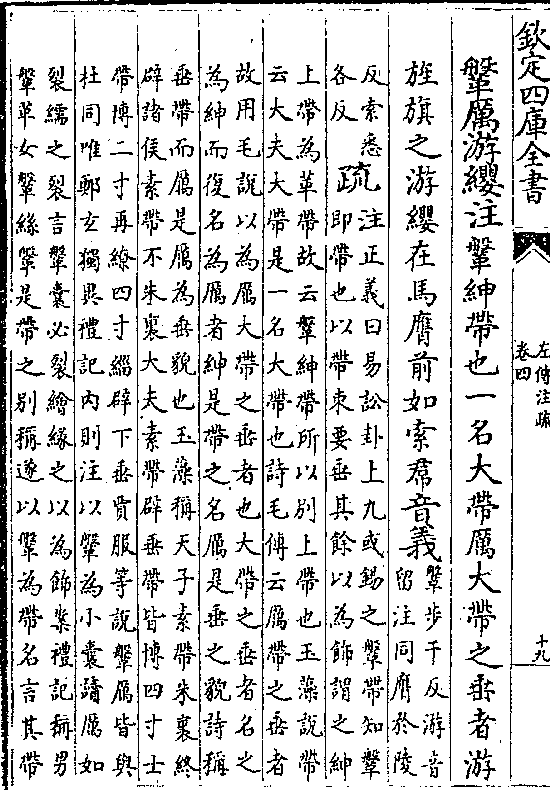 欽定四庫全書
左傳注疏
卷四
十九
鞶厲游纓注鞶紳帶也一名大帶厲大帶之垂者游
旌旗之游纓在馬膺前如索帬音義
鞶步干反游音
留注同膺於陵
反索悉
各反
疏
注正義曰易訟卦上九或錫之鞶帶知鞶
即帶也以帶束要垂其餘以為飾謂之紳
上帶為革帶故云鞶紳帶所以別上帶也玉藻說帶
云大夫大帶是一名大帶也詩毛傳云厲帶之垂者
故用毛說以為厲大帶之垂者也大帶之垂者名之
為紳而復名為厲者紳是帶之名厲是垂之貌詩稱
垂帶而厲是厲為垂貌也玉藻稱天子素帶朱裏終
辟諸侯素帶不朱裏大夫素帶辟垂帶皆博四寸士
帶博二寸再繚四寸緇辟下垂賈服等說鞶厲皆與
杜同唯鄭玄獨異禮記内則注以鞶為小囊讀厲如
裂繻之裂言鞶囊必裂繒緣之以為飾案禮記稱男
鞶革女鞶絲鞶是帶之別稱遂以鞶為帶名言其帶